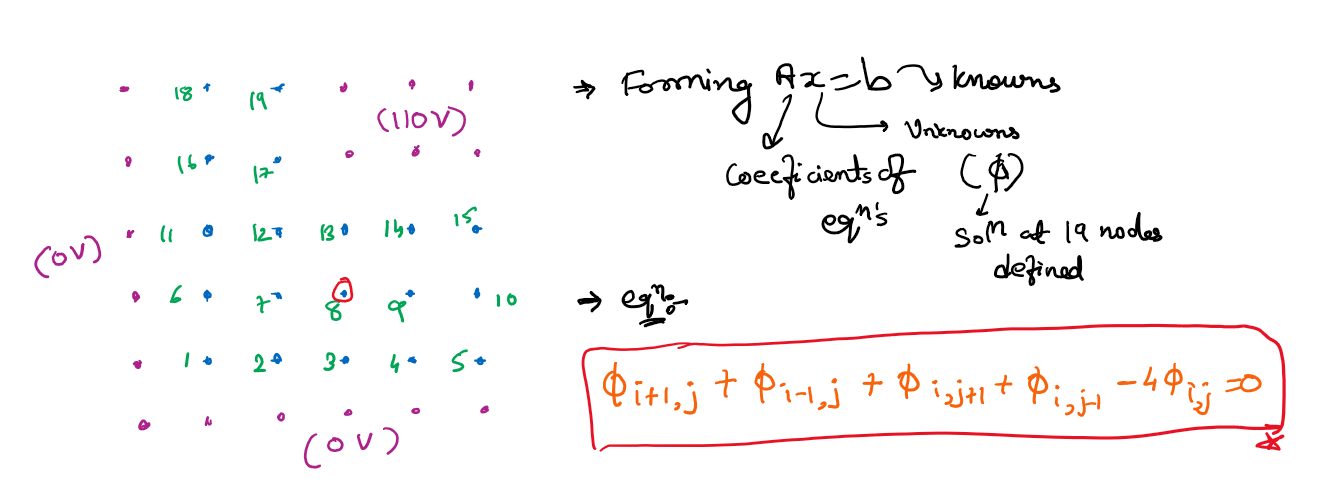 18 19
(110V)
16 17
11 12 13 14 15
(0V)
6 7 8 9 10
1 2 3 4 5
(0V)
⇒ Forming Ax=b → knowns
→ Unknowns
Coefficients of
eqⁿ's
(ϕ)
Solⁿ at 19 nodes
defined
→ eqⁿ:-
ϕi+1,j + ϕi-1,j + ϕi,j+1 + ϕi,j-1 - 4ϕi,j = 0